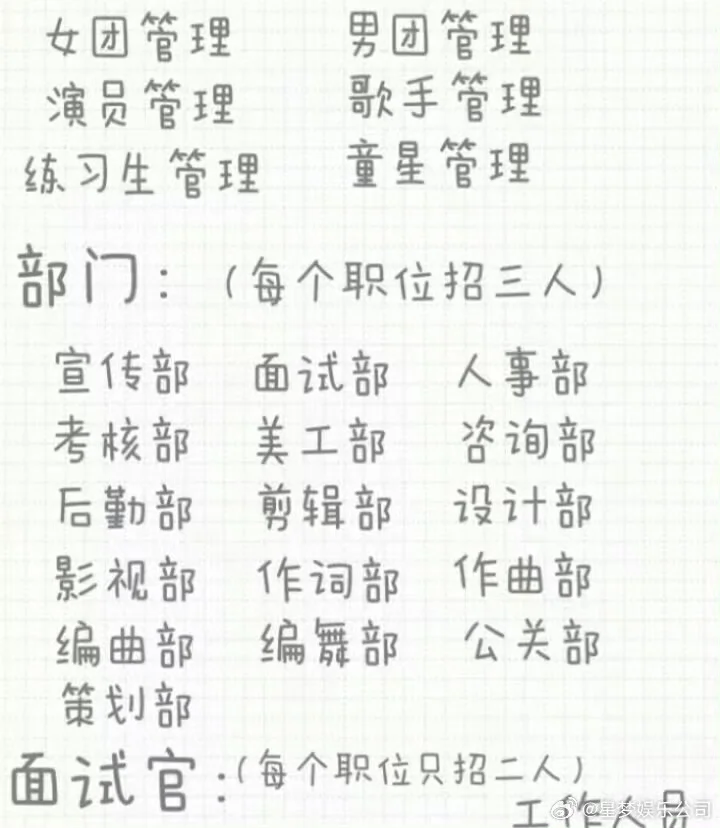 女团管理 男团管理
演员管理 歌手管理
练习生管理 童星管理
部门：（每个职位招三人）
宣传部 面试部 人事部
考核部 美工部 咨询部
后勤部 剪辑部 设计部
影视部 作词部 作曲部
编曲部 编舞部 公关部
策划部
面试官：（每个职位只招二人）
工作人员
@星梦娱乐公司